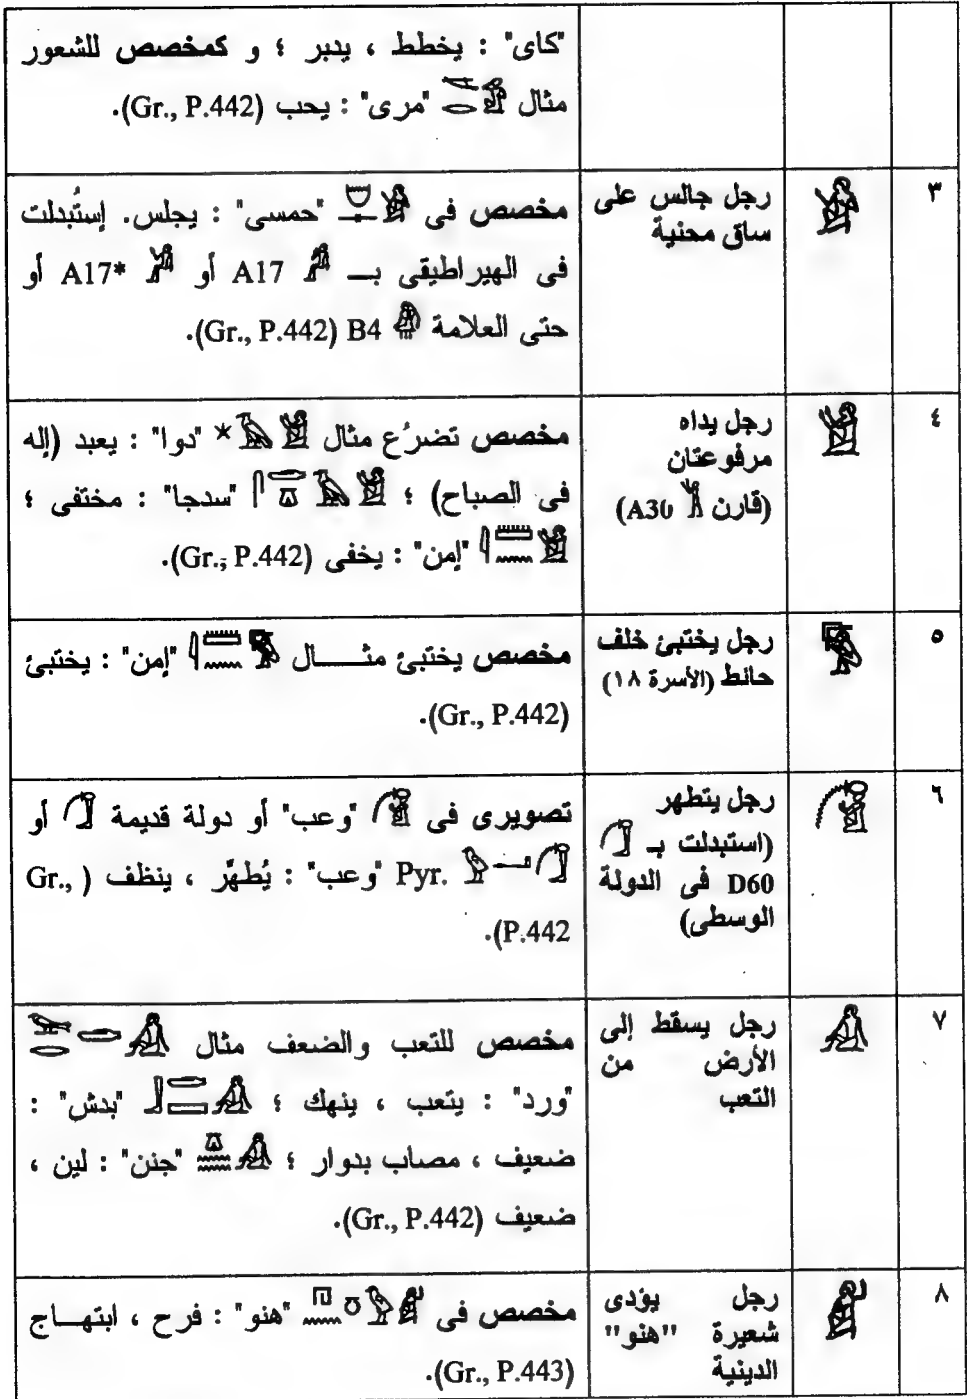 "كاى" : يخطط ، يدبر ؛ و كمخصص للشعور
مثال "مرى" : يحب (Gr., P.442).
٣
رجل جالس على
ساق محنية
مخصص فى "حمسى" : يجلس. إستُبدلت
فى الهيراطيقى بـــ A17 أو A17* أو
حتى العلامة B4 (Gr., P.442).
٤
رجل يداه
مرفوعتان
(قارن A30)
مخصص تضرُع مثال "دوا" : يعبد (إله
فى الصباح) ؛ "سدجا" : مختفى ؛
"إمن" : يخفى (Gr., P.442).
٥
رجل يختبئ خلف
حائط (الأسرة ١٨)
مخصص يختبئ مثـــــال "إمن" : يختبئ
(Gr., P.442).
٦
رجل يتطهر
(استبدلت بـ
D60 فى الدولة
الوسطى)
تصويرى فى "وعب" أو دولة قديمة أو
Pyr. "وعب" : يُطهَّر ، ينظف (Gr.,
P.442).
٧
رجل يسقط إلى
الأرض من
التعب
مخصص للتعب والضعف مثال
"ورد" : يتعب ، ينهك ؛ "بدش" :
ضعيف ، مصاب بدوار ؛ "جنن" : لين ،
ضعيف (Gr., P.442).
٨
رجل يؤدى
شعيرة "هنو"
الدينية
مخصص فى "هنو" : فرح ، ابتهـــاج
(Gr., P.443).